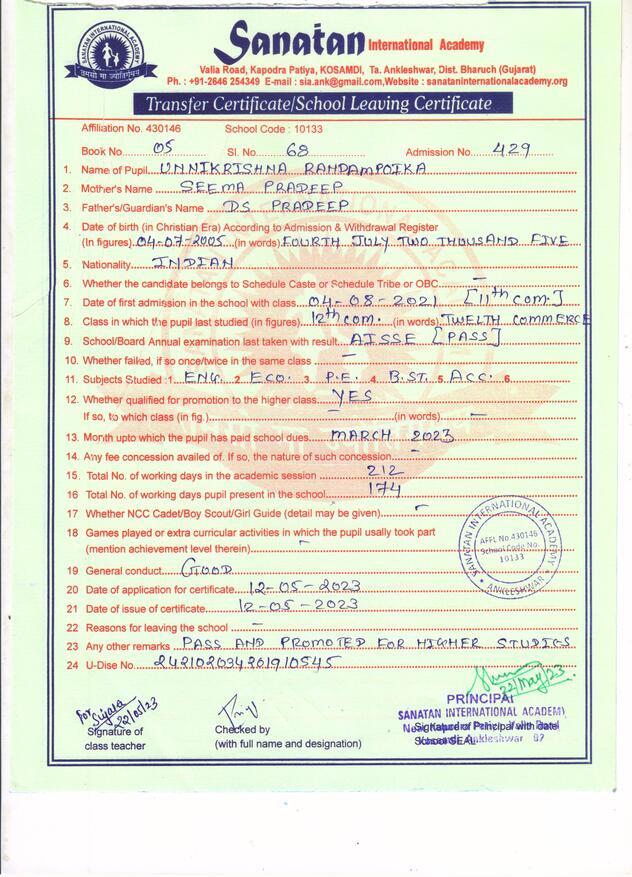 SANATAN INTERNATIONAL ACADEMY
तमसो मा ज्योतिर्गमय
Sanatan International Academy
Valia Road, Kapodra Patiya, KOSAMDI, Ta. Ankleshwar, Dist. Bharuch (Gujarat)
Ph. : +91-2646 254349 E-mail : sia.ank@gmail.com,Website : sanataninternationalacademy.org
Transfer Certificate/School Leaving Certificate
Affiliation No. 430146 School Code : 10133
Book No. 05 Sl. No. 68 Admission No. 429
1. Name of Pupil UNNIKRISHNA RANDAMPOIKA
2. Mother's Name SEEMA PRADEEP
3. Father's/Guardian's Name DS PRADEEP
4. Date of birth (in Christian Era) According to Admission & Withdrawal Register
(In figures) 04-07-2005 (in words) FOURTH JULY TWO THOUSAND FIVE
5. Nationality INDIAN
6. Whether the candidate belongs to Schedule Caste or Schedule Tribe or OBC —
7. Date of first admission in the school with class 04-08-2021 [11th COM.]
8. Class in which the pupil last studied (in figures) 12th COM. (in words) TWELTH COMMERCE
9. School/Board Annual examination last taken with result AISSE [PASS]
10. Whether failed, if so once/twice in the same class —
11. Subjects Studied :1 ENG. 2. ECO. 3. P.E. 4. B.ST. 5. ACC. 6.
12. Whether qualified for promotion to the higher class YES
If so, to which class (in fig.) — (in words) —
13. Month upto which the pupil has paid school dues MARCH 2023
14. Any fee concession availed of. If so, the nature of such concession —
15. Total No. of working days in the academic session 212
16 Total No. of working days pupil present in the school 174
17 Whether NCC Cadet/Boy Scout/Girl Guide (detail may be given) —
18 Games played or extra curricular activities in which the pupil usally took part
(mention achievement level therein) —
SANATAN INTERNATIONAL ACADEMY
AFFL No.430146
School Code No.
10133
ANKLESHWAR
19 General conduct GOOD
20 Date of application for certificate 12-05-2023
21 Date of issue of certificate 12-05-2023
22 Reasons for leaving the school —
23 Any other remarks PASS AND PROMOTED FOR HIGHER STUDIES
24 U-Dise No. 242102034201910545
22/May/23
for Sujata
22/05/23
PRINCIPAL
SANATAN INTERNATIONAL ACADEMY
Signature of Checked by Signature of Principal with date
class teacher (with full name and designation) School SEAL
Ankleshwar